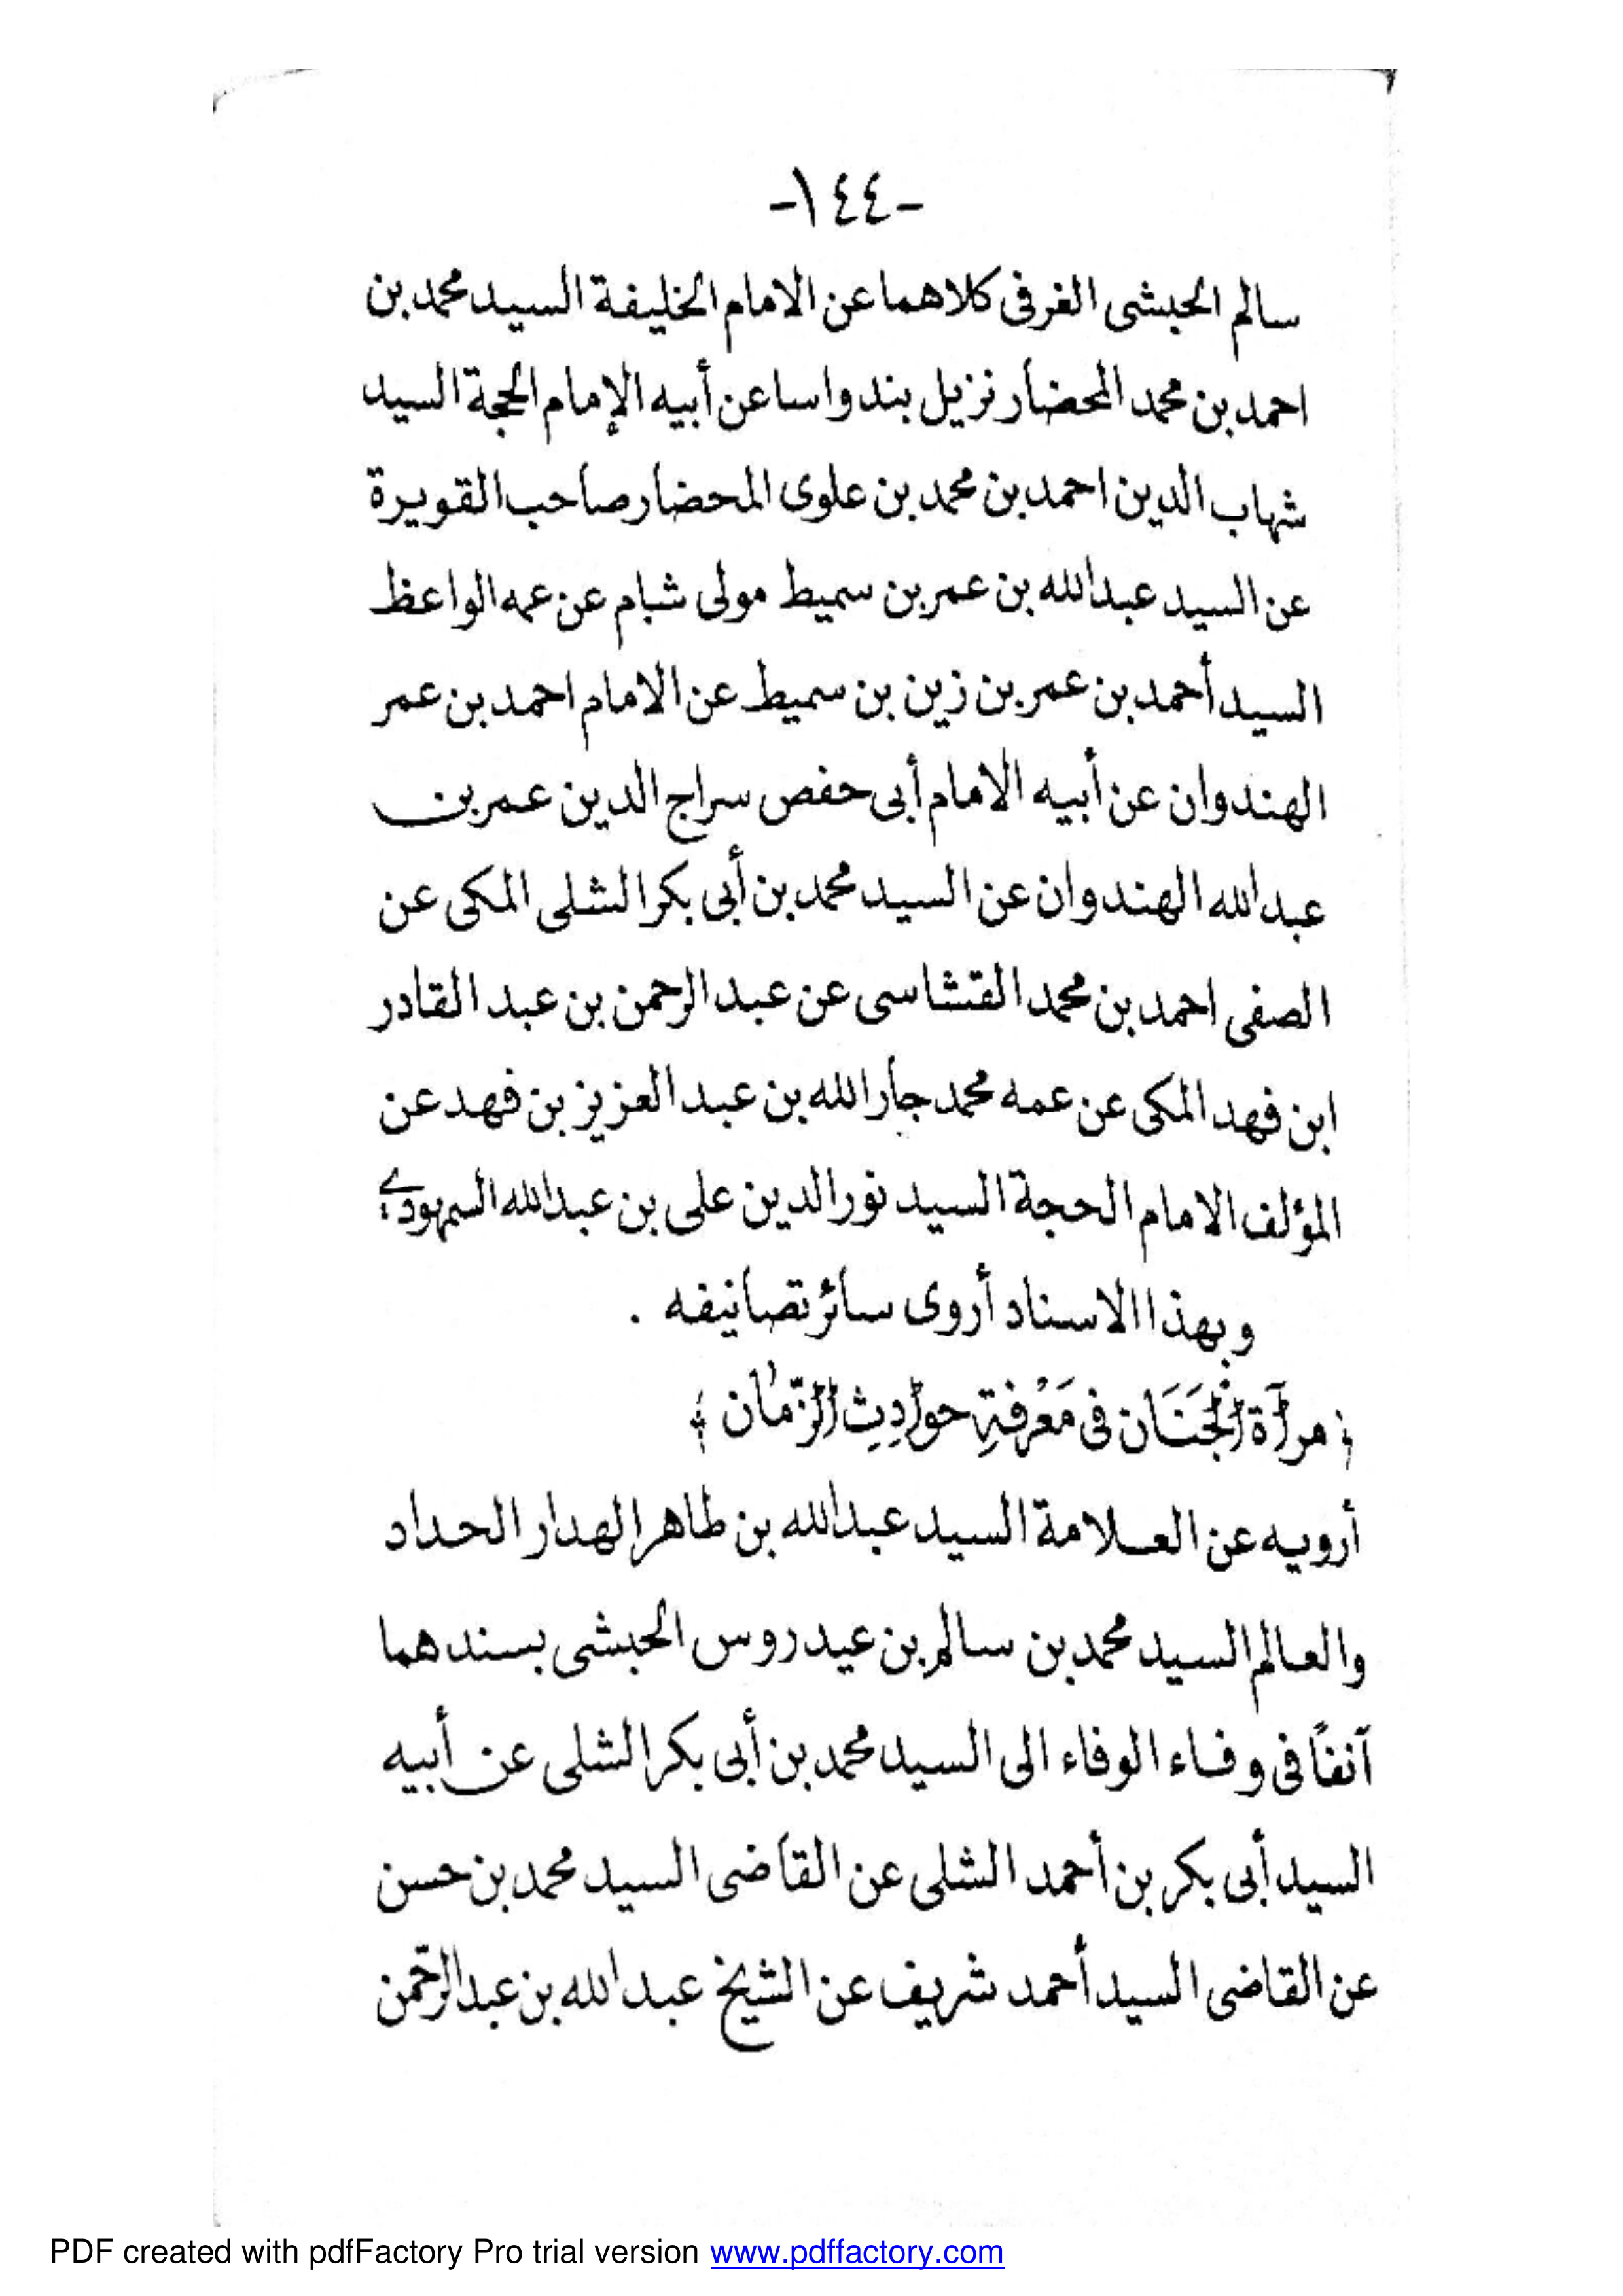 -١٤٤-
سالم الحبشى الغرفى كلاهما عن الامام الخليفة السيد محمد بن
احمد بن محمد المحضار نزيل بندواسا عن أبيه الإمام الحجة السيد
شهاب الدين احمد بن محمد بن علوى المحضار صاحب القويرة
عن السيد عبدالله بن عمر بن سميط مولى شبام عن عمه الواعظ
السيد أحمد بن عمر بن زين بن سميط عن الامام احمد بن عمر
الهندوان عن أبيه الامام أبى حفص سراج الدين عمر بن
عبدالله الهندوان عن السيد محمد بن أبى بكر الشلى المكى عن
الصفى احمد بن محمد القشاسى عن عبد الرحمن بن عبد القادر
ابن فهد المكى عن عمه محمد جار الله بن عبد العزيز بن فهد عن
المؤلف الامام الحجة السيد نور الدين على بن عبدالله السمهودى؛
وبهذا الاسناد أروى سائر تصانيفه .
﴿ مرآة الجَنَان فى مَعْرفةِ حوادِثِ الزّمان ﴾
أرويه عن العلامة السيد عبدالله بن طاهر الهدار الحداد
والعالم السيد محمد بن سالم بن عيدروس الحبشى بسندهما
آنفاً فى وفاء الوفاء الى السيد محمد بن أبى بكر الشلى عن أبيه
السيد أبى بكر بن أحمد الشلى عن القاضى السيد محمد بن حسن
عن القاضى السيد أحمد شريف عن الشيخ عبد الله بن عبد الرحّمن
PDF created with pdfFactory Pro trial version www.pdffactory.com